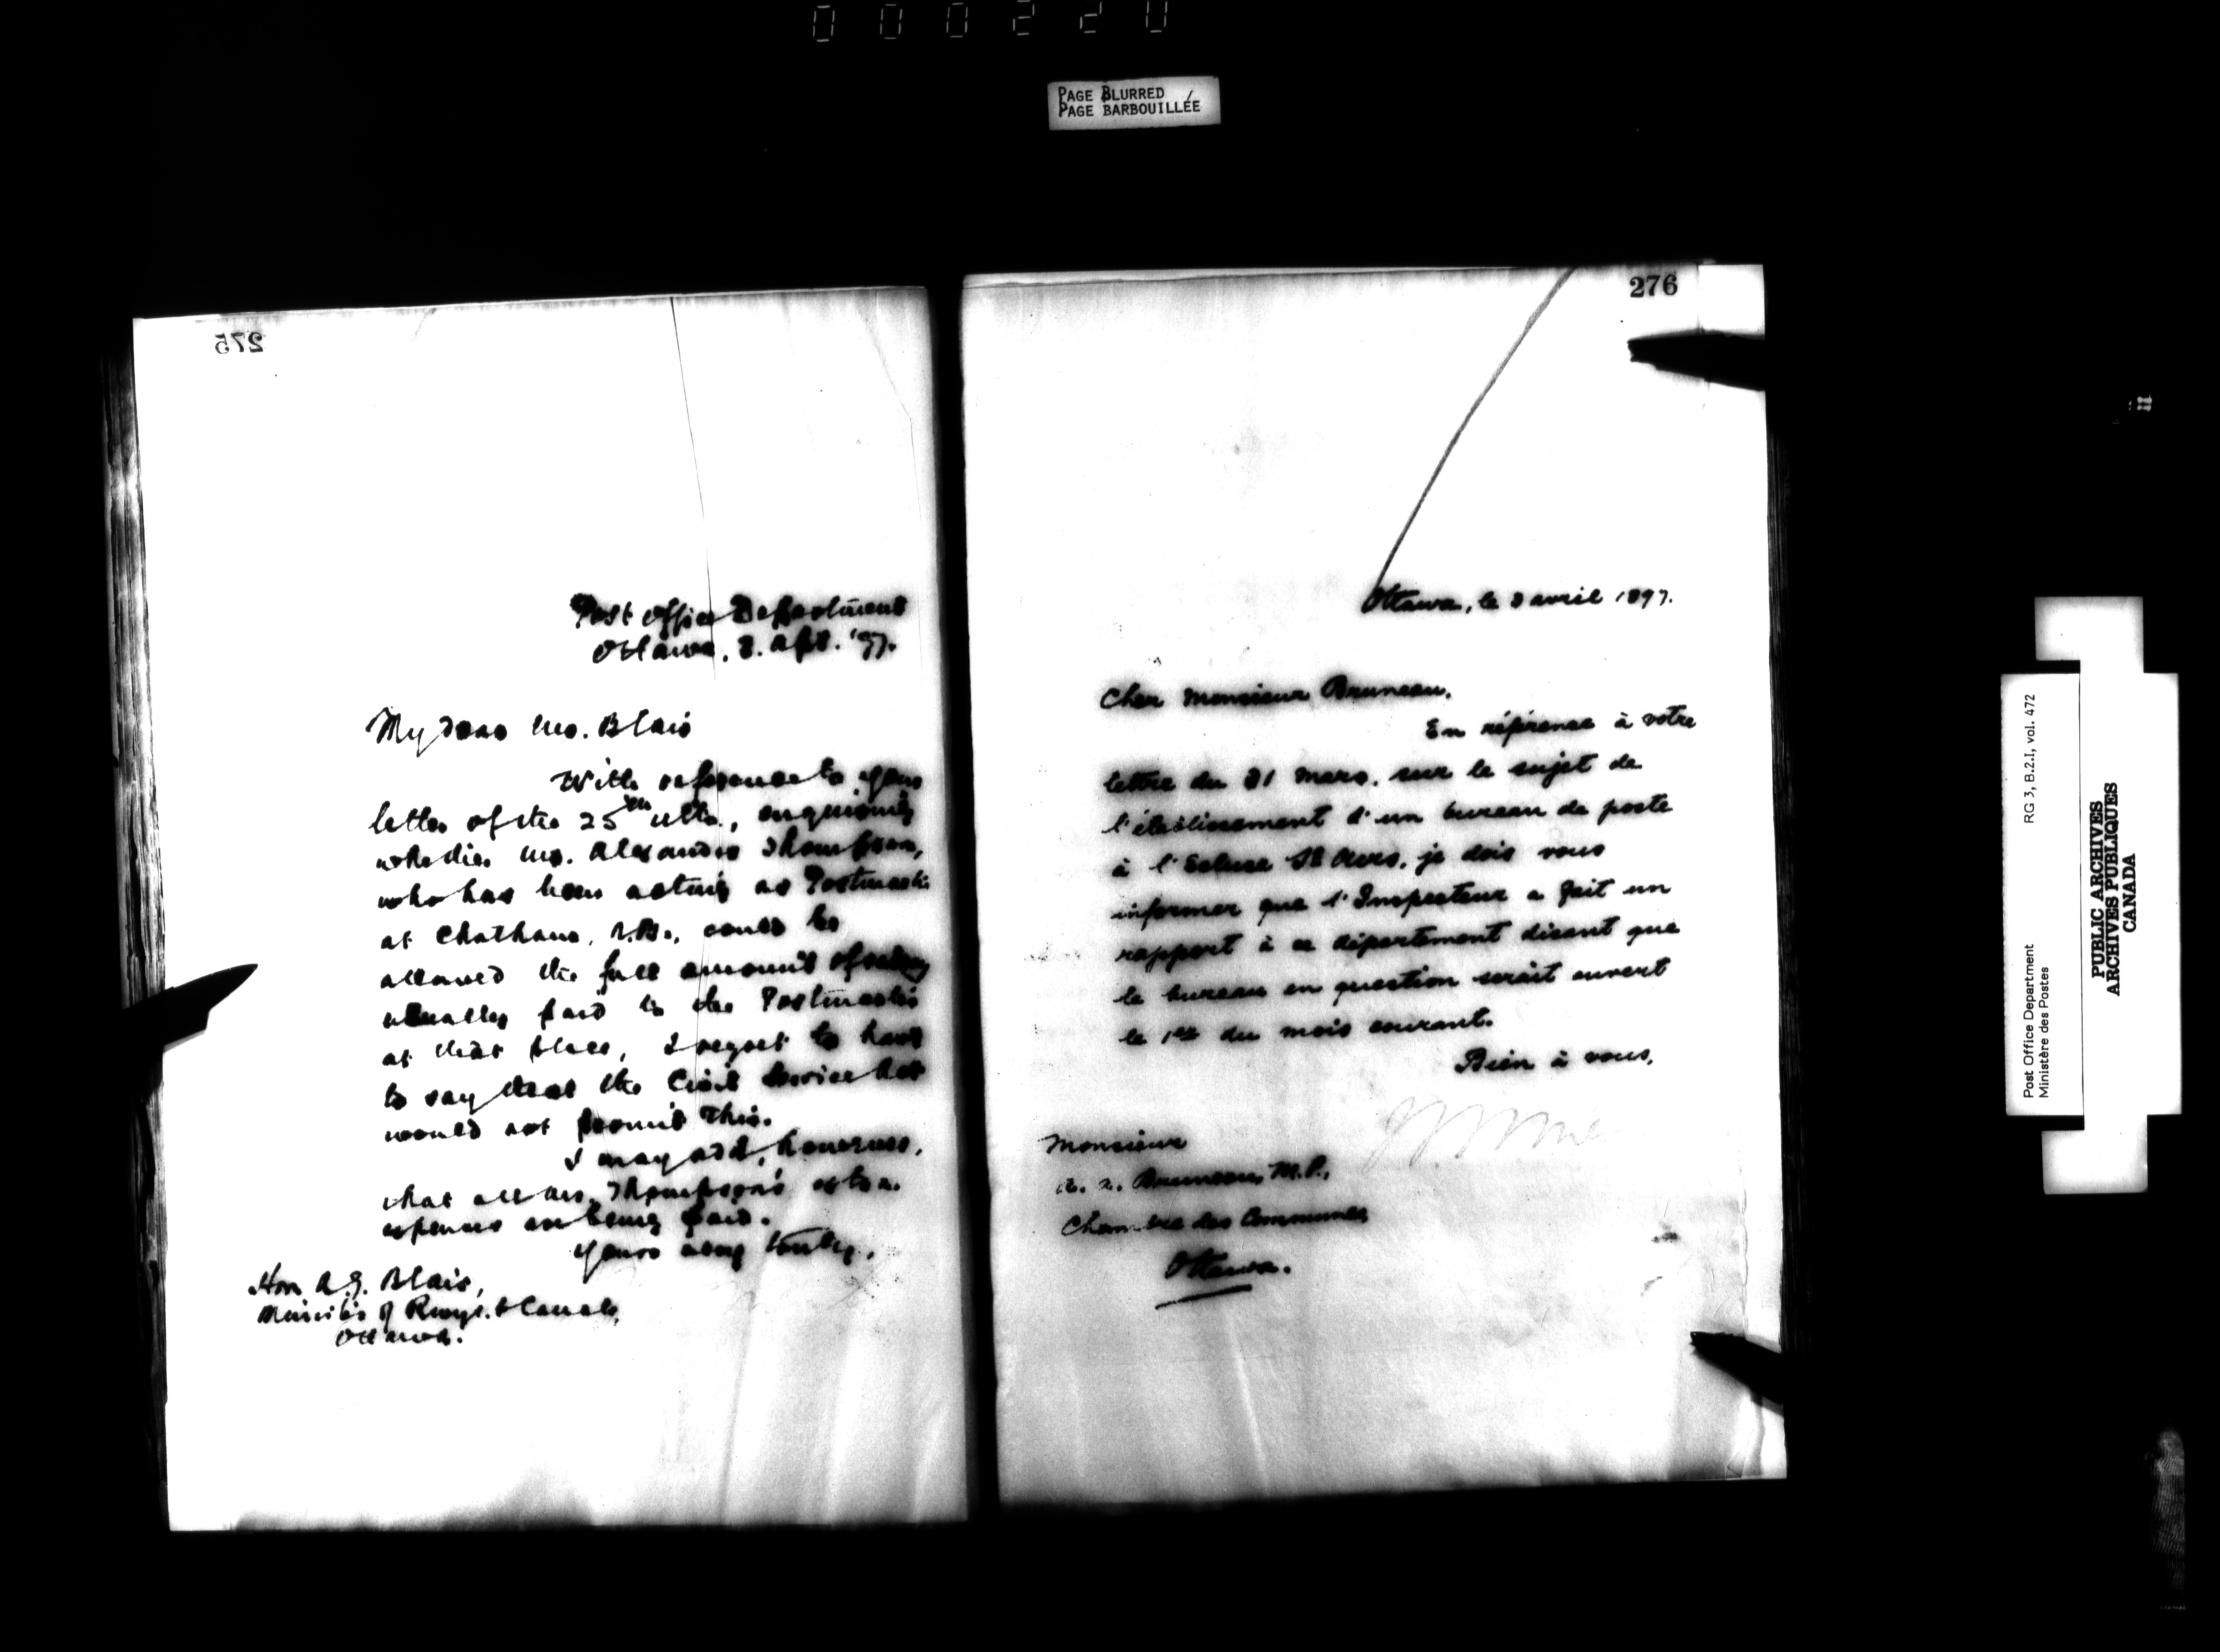 000220
PAGE BLURRED
PAGE BARBOUILLÉE
275
Post Office Department
Ottawa, 3. Apr. '97.
My dear Mr. Blair
With reference to your
letter of the 25th ulto., enquiring
whether Mr. Alexander Thompson,
who has been acting as Postmaster
at Chatham, N.B., could be
allowed the full amount of salary
usually paid to the Postmaster
at that place, I regret to have
to say that the Civil Service Act
would not permit this.
I may add, however,
that all Mr. Thompson's extra
expenses are being paid.
Yours very truly,
Hon. A.G. Blair,
Minister of Rwys. & Canals,
Ottawa.
276
Ottawa, le 3 avril 1897.
Cher Monsieur Bruneau,
En référence à votre
lettre du 31 mars, sur le sujet de
l'établissement d'un bureau de poste
à l'Ecluse St Ours, je dois vous
informer que l'Inspecteur a fait un
rapport à ce département disant que
le bureau en question serait ouvert
le 1er du mois courant.
Bien à vous,
Monsieur
A. A. Bruneau, M.P.,
Chambre des Communes,
Ottawa.
RG 3, B.2.I, vol. 472
Post Office Department
Ministère des Postes
PUBLIC ARCHIVES
ARCHIVES PUBLIQUES
CANADA